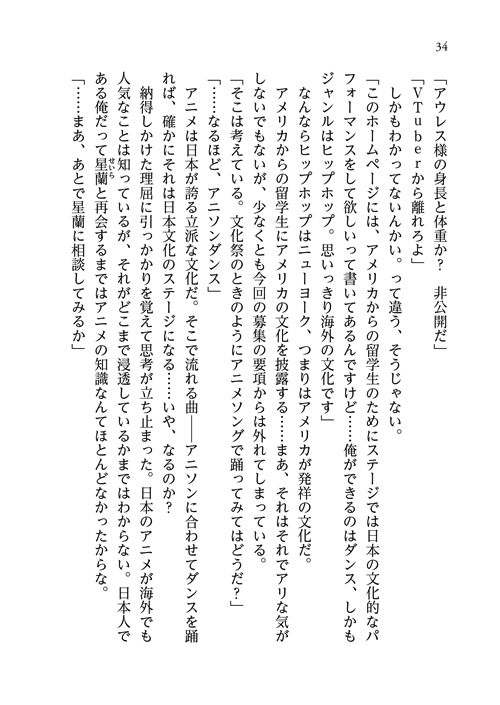 34
「アウレス様の身長と体重か？　非公開だ」
「ＶＴｕｂｅｒから離れろよ」
　しかもわかってないんかい。って違う、そうじゃない。
「このホームページには、アメリカからの留学生のためにステージでは日本の文化的なパ
フォーマンスをして欲しいって書いてあるんですけど……俺ができるのはダンス、しかも
ジャンルはヒップホップ。思いっきり海外の文化です」
　なんならヒップホップはニューヨーク、つまりはアメリカが発祥の文化だ。
　アメリカからの留学生にアメリカの文化を披露する……まあ、それはそれでアリな気が
しないでもないが、少なくとも今回の募集の要項からは外れてしまっている。
「そこは考えている。文化祭のときのようにアニメソングで踊ってみてはどうだ？」
「……なるほど、アニソンダンス」
　アニメは日本が誇る立派な文化だ。そこで流れる曲――アニソンに合わせてダンスを踊
れば、確かにそれは日本文化のステージになる……いや、なるのか？
　納得しかけた理屈に引っかかりを覚えて思考が立ち止まった。日本のアニメが海外でも
人気なことは知っているが、それがどこまで浸透しているかまではわからない。日本人で
ある俺だって星蘭せいらと再会するまではアニメの知識なんてほとんどなかったからな。
「……まあ、あとで星蘭に相談してみるか」